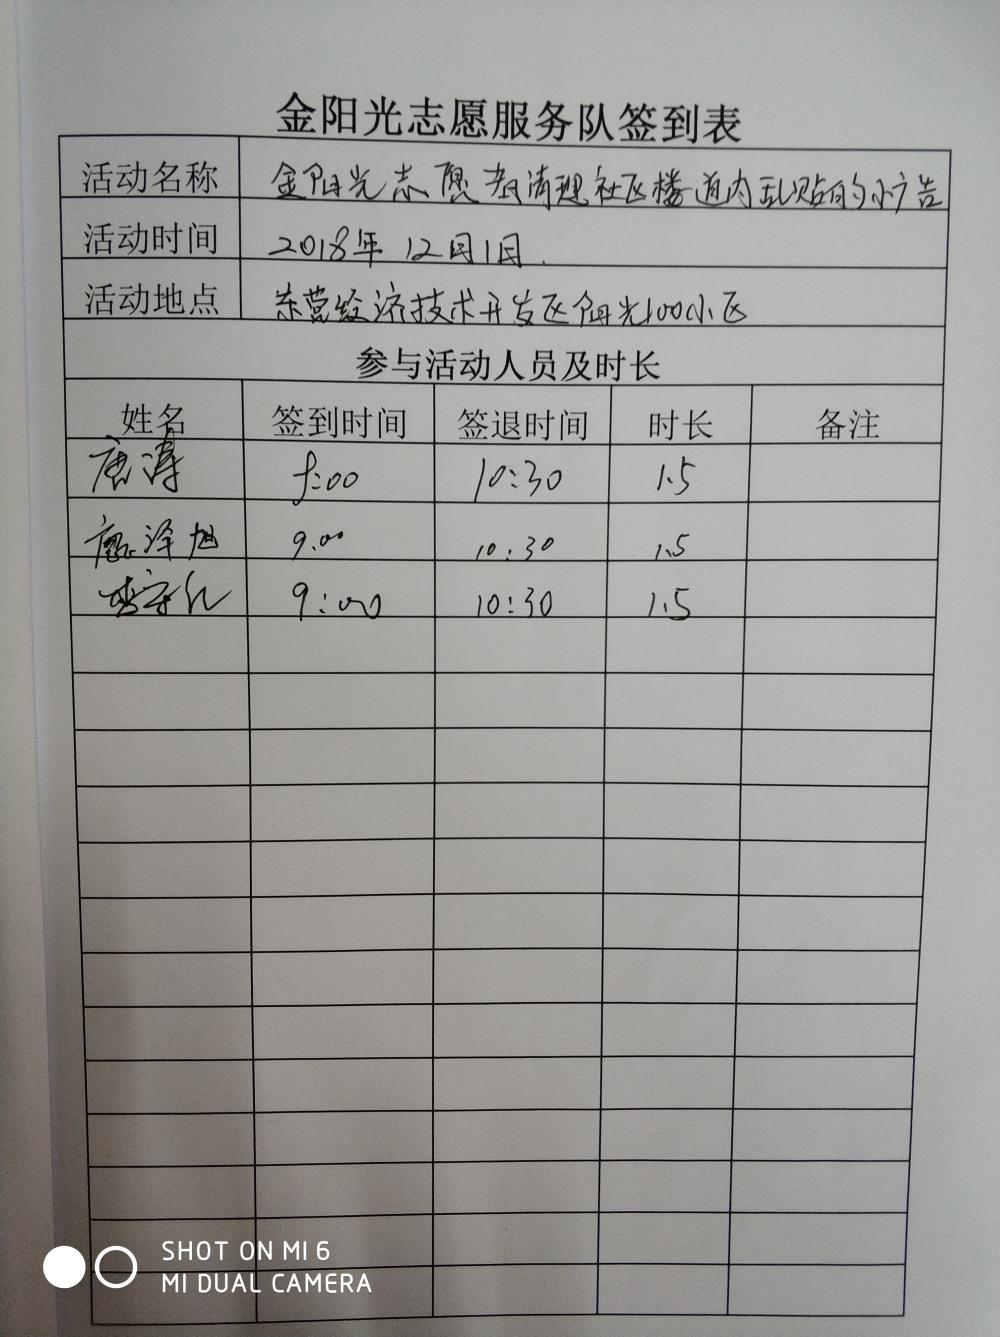 金阳光志愿服务队签到表
活动名称 金阳光志愿者清理社区楼道内乱贴的小广告
活动时间 2018年12月1日.
活动地点 东营经济技术开发区阳光100小区
参与活动人员及时长
姓名 签到时间 签退时间 时长 备注
唐涛 :00 10:30 1.5
唐泽旭 9:00 10:30 1.5
9:00 10:30 1.5
SHOT ON MI 6
MI DUAL CAMERA